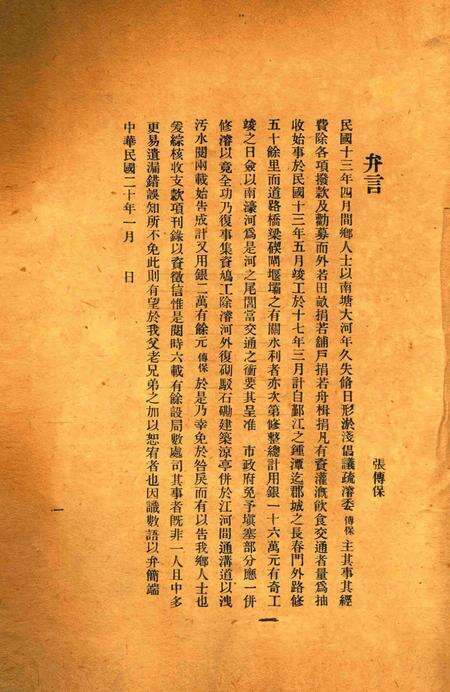 弁言
張傳保
民國十三年四月間鄉人士以南塘大河年久失脩日形淤淺倡議疏濬委傳保主其事其經
費除各項撥款及勸募而外若田畝捐若舖戶捐若舟楫捐凡有資灌漑飲食交通者量爲抽
收始事於民國十三年五月竣工於十七年三月計自鄞江之鍾潭迄郡城之長春門外路修
五十餘里而道路橋梁碶閘堰壩之有關水利者亦次第修整總計用銀一十六萬元有奇工
竣之日僉以南濠河爲是河之尾閭當交通之衝要其呈准　市政府免予塡塞部分應一併
修濬以竟全功乃復事集資鳩工除濬河外復砌駁石磡建築涼亭併於江河間通溝道以洩
汚水閱兩載始告成計又用銀二萬有餘元傳保於是乃幸免於咎戾而有以告我鄉人士也
爰綜核收支款項刊錄以資徵信惟是閱時六載有餘設局數處司其事者旣非一人且中多
更易遺漏錯誤知所不免此則有望於我父老兄弟之加以恕宥者也因識數語以弁簡端
中華民國二十年一月　　日
一